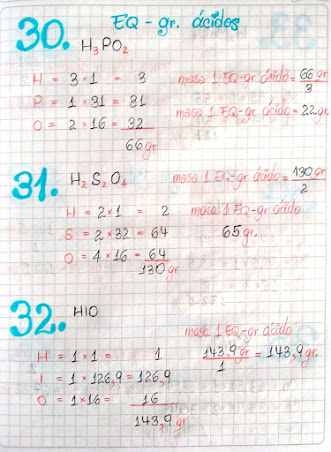 EQ-gr. ácidos
30. H₃PO₂
H = 3×1 = 3 masa 1 EQ-gr ácido = 66 gr / 3
P = 1×31 = 31
O = 2×16 = 32 masa 1 EQ-gr ácido = 22 gr
66 gr
31. H₂S₂O₄ masa 1 EQ-gr ácido = 130 gr / 2
H = 2×1 = 2 masa 1 EQ-gr ácido
S = 2×32 = 64 65 gr.
O = 4×16 = 64
130 gr
32. HIO
masa 1 EQ-gr ácido
H = 1×1 = 1 143,9 gr / 1 = 143,9 gr.
I = 1×126,9 = 126,9
O = 1×16 = 16
143,9 gr